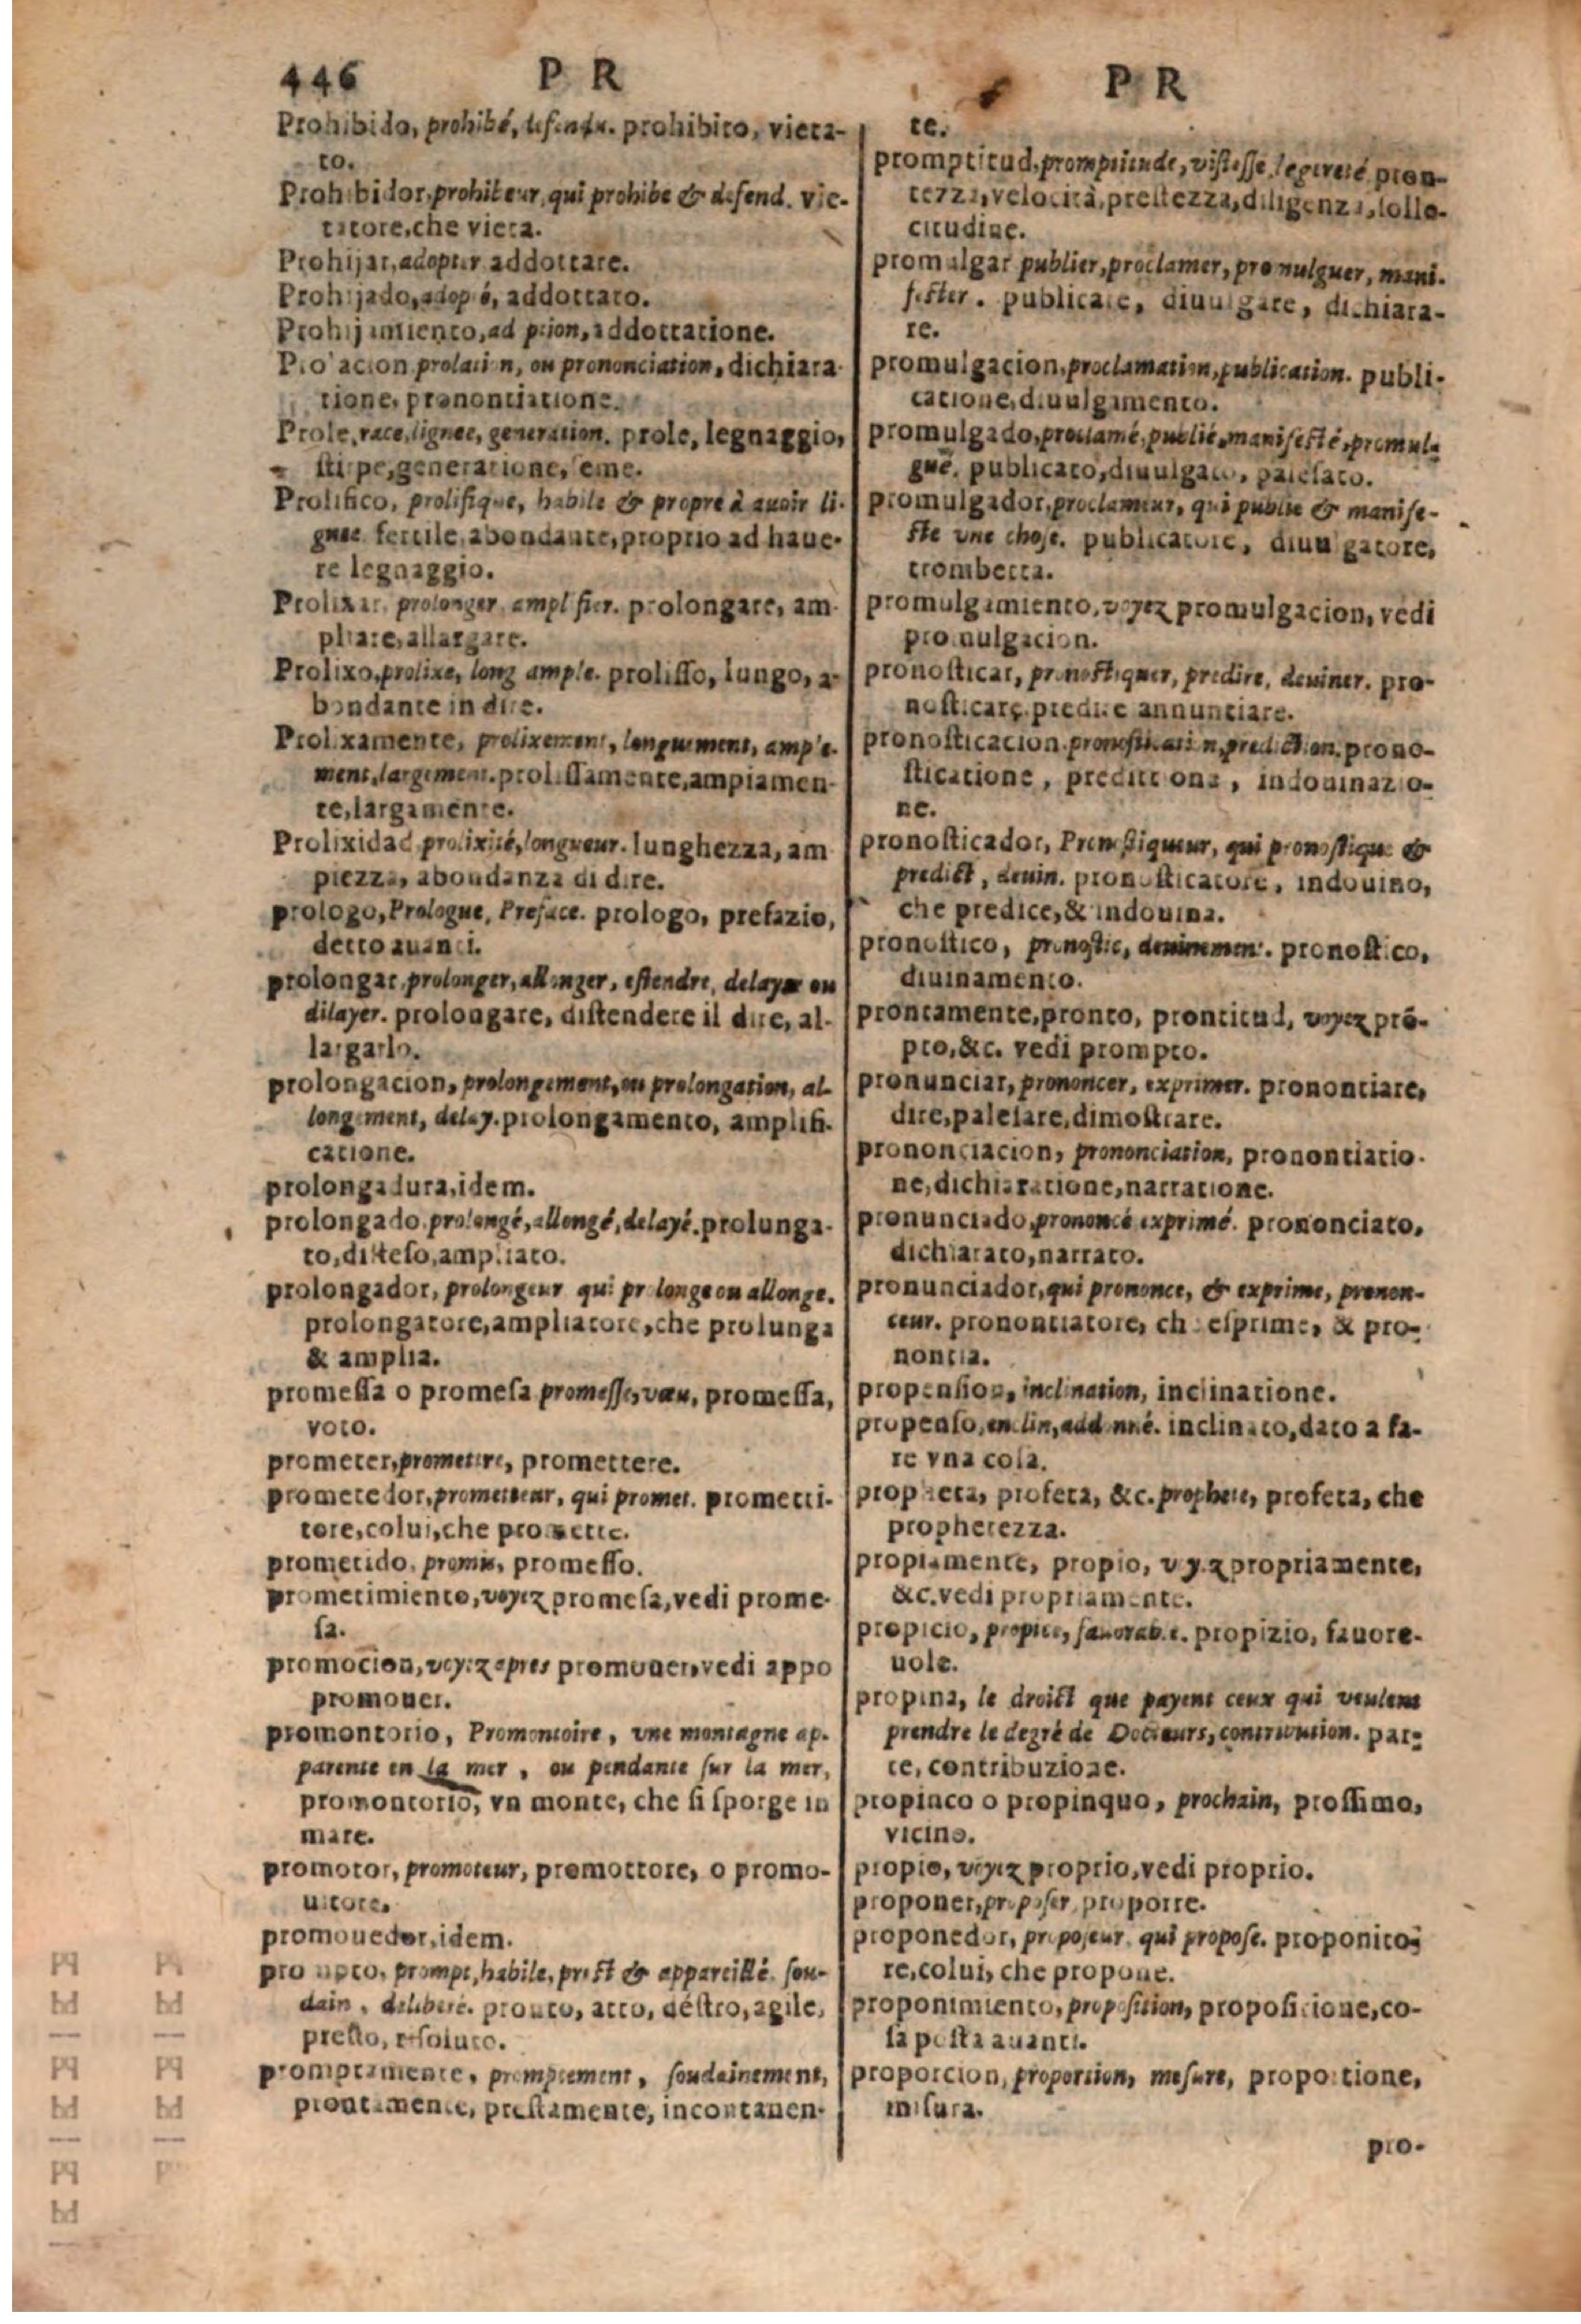 446 P R
Prohibido, prohibé, defendu. prohibito, vieta-
to.
Prohibidor, prohibeur, qui prohibe & defend. vie-
tatore, che vieta.
Prohijar, adopter addottare.
Prohijado, adopté, addottato.
Prohijamiento, adoption, addottatione.
Prolacion prolation, ou prononciation, dichiara-
tione, pronontiatione.
Prole, race, lignee, generation. prole, legnaggio,
stirpe, generatione, seme.
Prolifico, prolifique, habile & propre à auoir li-
gnee fertile, abondante, proprio ad haue-
re legnaggio.
Prolixar, prolonger, amplifier. prolongare, am-
pliare, allargare.
Prolixo, prolixe, long ample. prolisso, lungo, a-
bondante in dire.
Prolixamente, prolixement, longuement, ample-
ment, largement. prolissamente, ampiamen-
te, largamente.
Prolixidad prolixité, longueur. lunghezza, am
piezza, abondanza di dire.
prologo, Prologue, Preface. prologo, prefazio,
detto auanti.
prolongar, prolonger, allonger, estendre, delayer ou
dilayer. prolongare, distendere il dire, al-
largarlo.
prolongacion, prolongement, ou prolongation, al-
longement, delay. prolongamento, amplifi-
catione.
prolongadura, idem.
prolongado. prolongé, allongé, delayé. prolunga-
to, disteso, ampliato.
prolongador, prolongeur qui prolonge ou allonge.
prolongatore, ampliatore, che prolunga
& amplia.
promessa o promesa promesse, vœu, promessa,
voto.
prometer, promettre, promettere.
prometedor, prometteur, qui promet. prometti-
tore, colui, che promette.
prometido. promis, promesso.
prometimiento, voyez promesa, vedi prome-
sa.
promocion, voyez apres promouer, vedi appo
promouer.
promontorio, Promontoire, vne montagne ap-
parente en la mer, ou pendante sur la mer,
promontorio, vn monte, che si sporge in
mare.
promotor, promoteur, premottore, o promo-
uitore.
promouedor, idem.
prompto, prompt, habile, prest & appareillé. sou-
dain, deliberé. pronto, atto, destro, agile,
presto, resoluto.
promptamente, promptement, soudainement,
prontamente, prestamente, incontanen-
P R
te.
promptitud, promptitude, vistesse, legereté pron-
tezza, velocità, prestezza, diligenza, solle-
citudine.
promulgar publier, proclamer, promulguer, mani-
fester. publicare, diuulgare, dichiara-
re.
promulgacion, proclamation, publication. publi-
catione, diuulgamento.
promulgado, proclamé, publié, manifesté, promul-
gué. publicato, diuulgato, palesato.
promulgador, proclameur, qui publie & manife-
ste vne chose. publicatore, diuulgatore,
trombetta.
promulgamiento, voyez promulgacion, vedi
promulgacion.
pronosticar, pronostiquer, predire, deuiner. pro-
nosticare, predire annuntiare.
pronosticacion. pronostication, prediction. prono-
sticatione, predittiona, indouinazio-
ne.
pronosticador, Pronostiqueur, qui pronostique &
predict, deuin. pronosticatore, indouino,
che predice, & indouina.
pronostico, pronostic, deuinement. pronostico,
diuinamento.
prontamente, pronto, prontitud, voyez prõ-
pto, &c. vedi prompto.
pronunciar, prononcer, exprimer. prononciare,
dire, palesare, dimostrare.
prononciacion, prononciation, pronontiatio-
ne, dichiaratione, narratione.
pronunciado, prononcé exprimé. prononciato,
dichiarato, narrato.
pronunciador, qui prononce, & exprime, pronon-
ceur. prononciatore, che esprime, & pro-
nontia.
propension, inclination, inclinatione.
propenso, enclin, addonné. inclinato, dato a fa-
re vna cosa.
propheta, profeta, &c. prophete, profeta, che
propherezza.
propiamente, propio, voyez propriamente,
&c. vedi propriamente.
propicio, propice, fauorable. propizio, fauore-
uole.
propina, le droict que payent ceux qui veulent
prendre le degré de Docteurs, contribution. par-
te, contribuzione.
propinco o propinquo, prochain, prossimo,
vicino.
propio, voyez proprio, vedi proprio.
proponer, proposer, proporre.
proponedor, proposeur, qui propose. proponito-
re, colui, che propone.
proponimiento, proposition, propositione, co-
sa posta auanti.
proporcion, proportion, mesure, proportione,
misura.
pro-